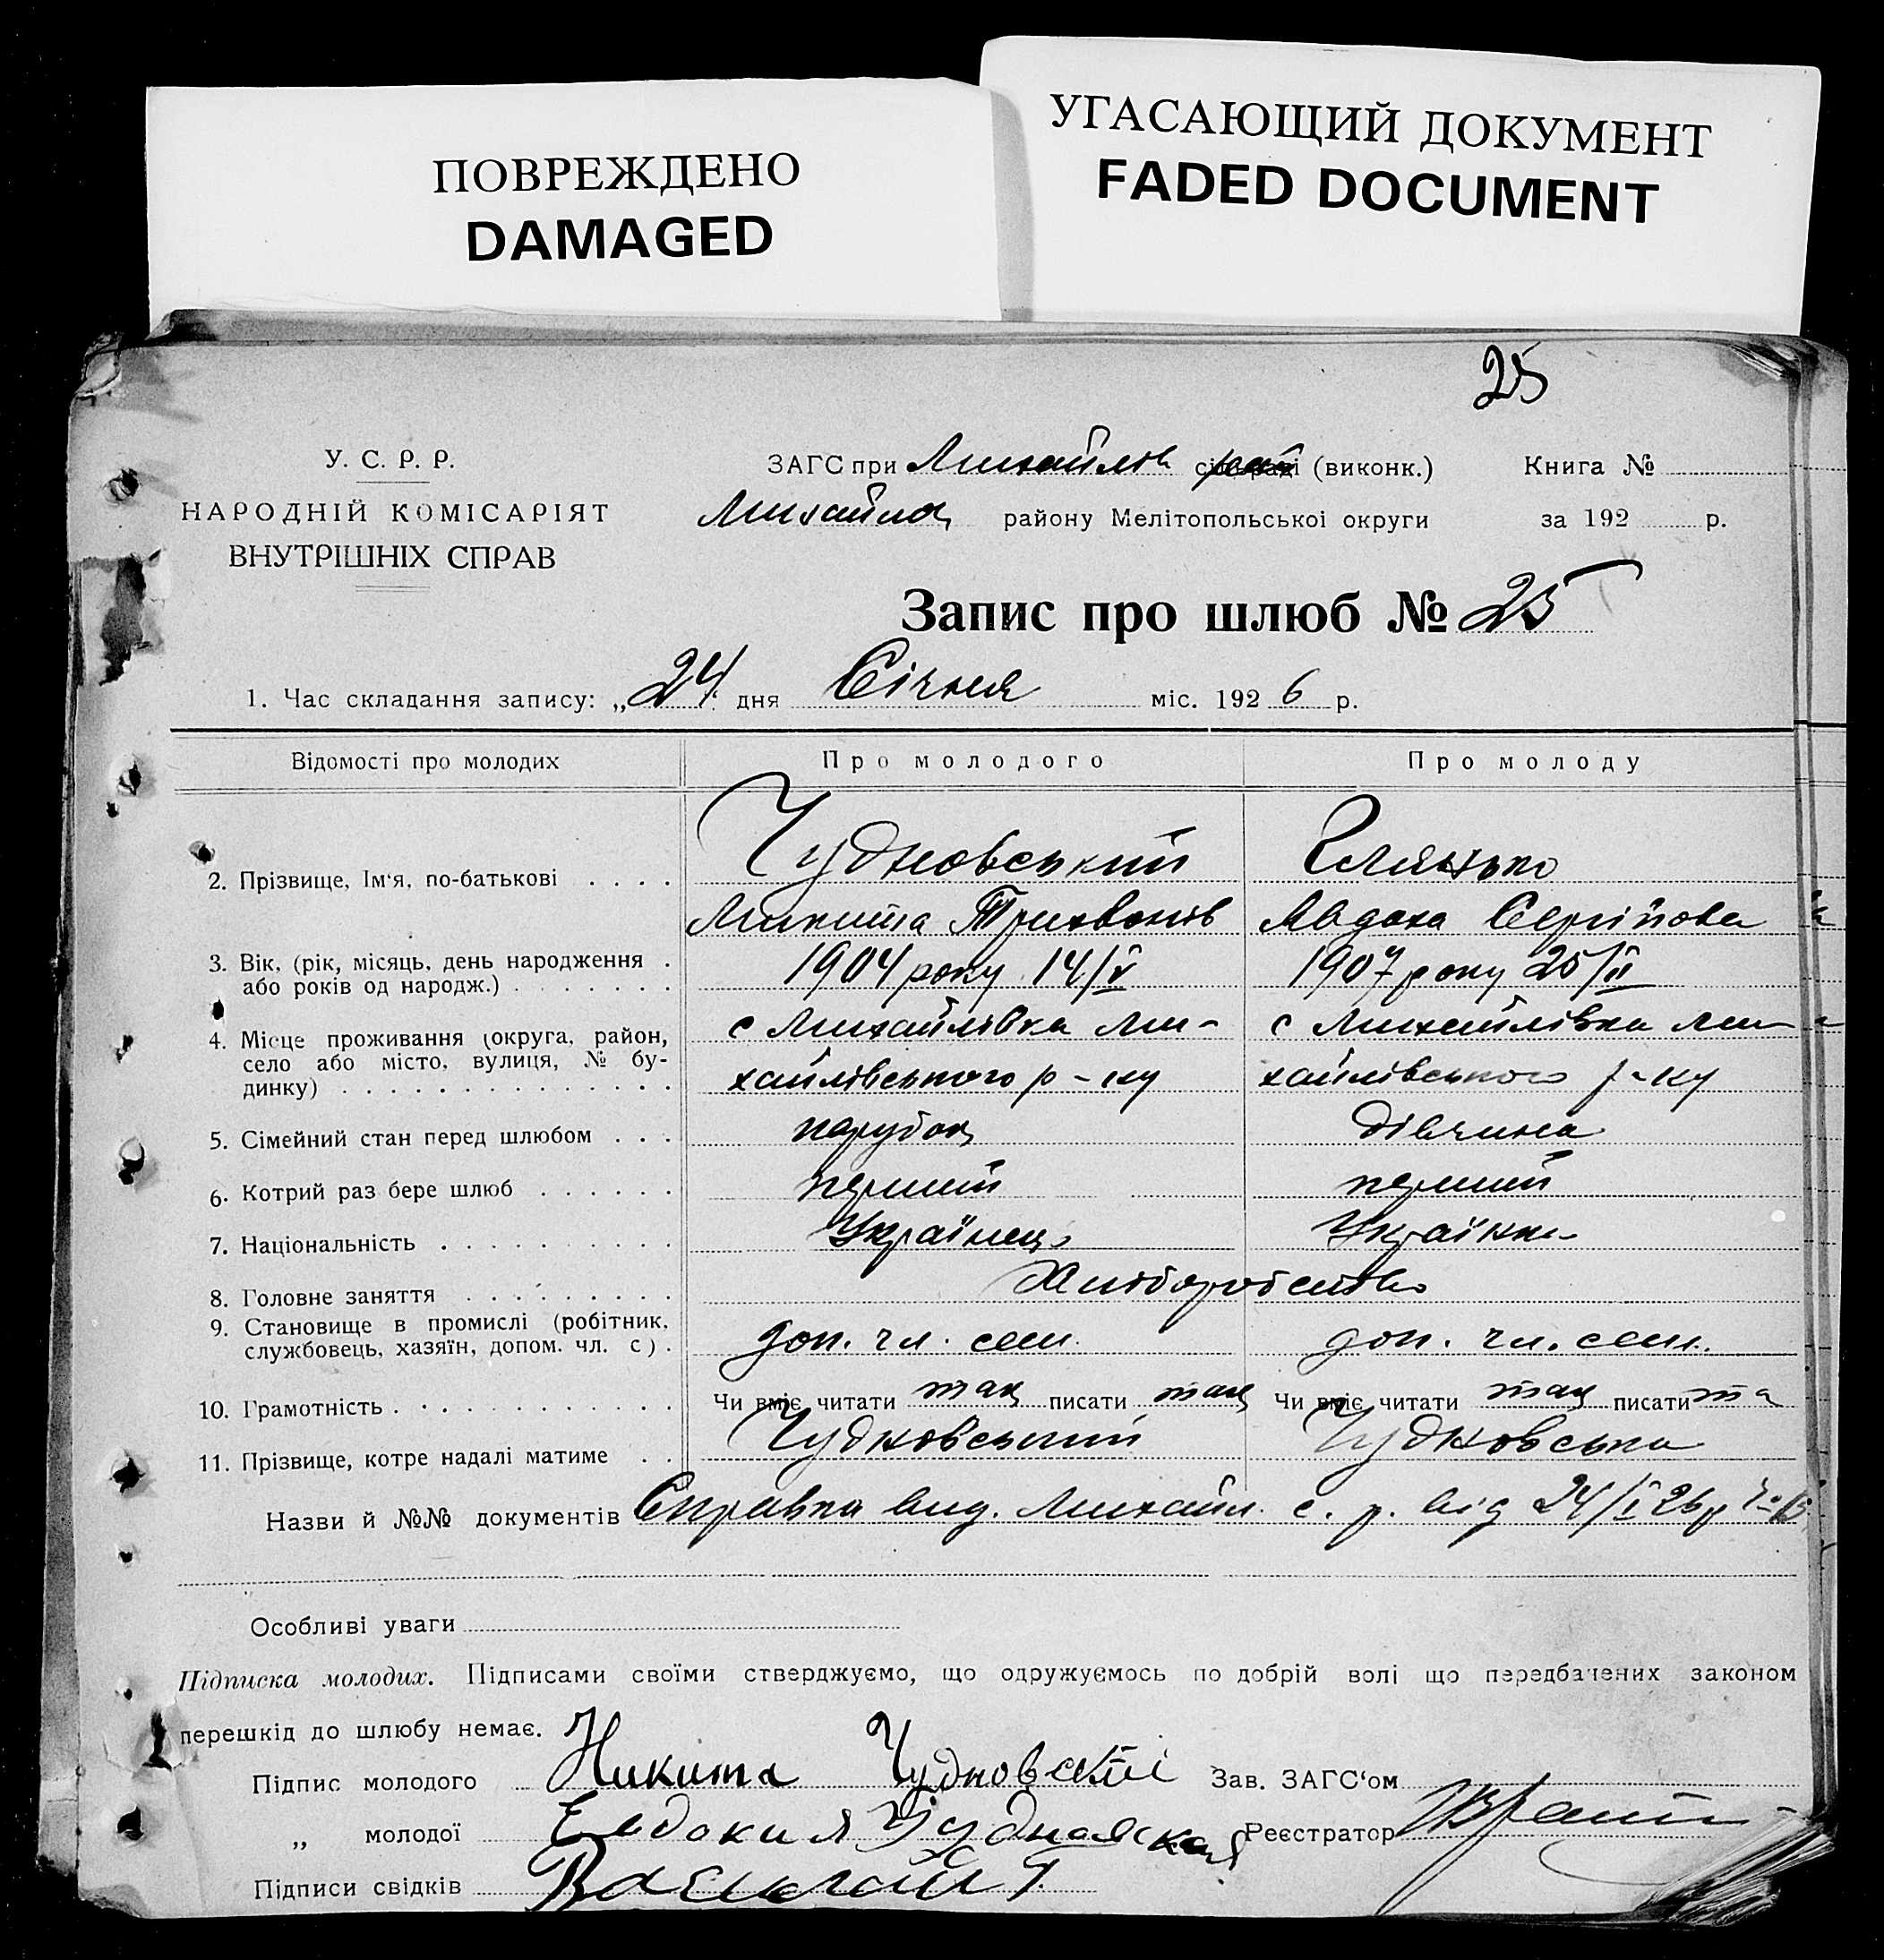 ПОВРЕЖДЕНО
DAMAGED
УГАСАЮЩИЙ ДОКУМЕНТ
FADED DOCUMENT
25
У. С. Р. Р.
НАРОДНІЙ КОМІСАРІЯТ
ВНУТРІШНІХ СПРАВ
ЗАГС при Михайлів (виконк.) Книга №
Михайлов району Мелітопольської округи за 192 р.
Запис про шлюб № 25
1. Час складання запису: „24 дня Січня міс. 1926 р.
Відомості про молодих Про молодого Про молоду
2. Прізвище, Ім'я, по-батькові Чудновський
Микита Трихвонів Явдоха Сергіїова
3. Вік, (рік, місяць, день народження 1904 року 14/V 1907 року 25/II
або років од народж.)
4. Місце проживання (округа, район, с Михайлівка Ми- с Михайлівка Ми-
село або місто, вулиця, № бу- хайлівського р-ку хайлівського р-ку
динку)
5. Сімейний стан перед шлюбом парубок дівчина
6. Котрий раз бере шлюб перший перший
7. Національність Українець Українка
8. Головне заняття Хліборобство
9. Становище в промислі (робітник, доп. чл. сем. доп. чл. сем.
службовець, хазяїн, допом. чл. с)
10. Грамотність Чи вміє читати так писати так Чи вміє читати так писати та
11. Прізвище, котре надалі матиме Чудновський Чудновська
Назви й №№ документів Справка вид. Михайл. с. р. від 24/I 26 р
Особливі уваги
Підписка молодих. Підписами своїми стверджуємо, що одружуємось по добрій волі що передбачених законом
перешкід до шлюбу немає.
Підпис молодого Никита Чудновскій Зав. ЗАГС'ом
„ молодої Евдокия Чудновская Реєстратор
Підписи свідків